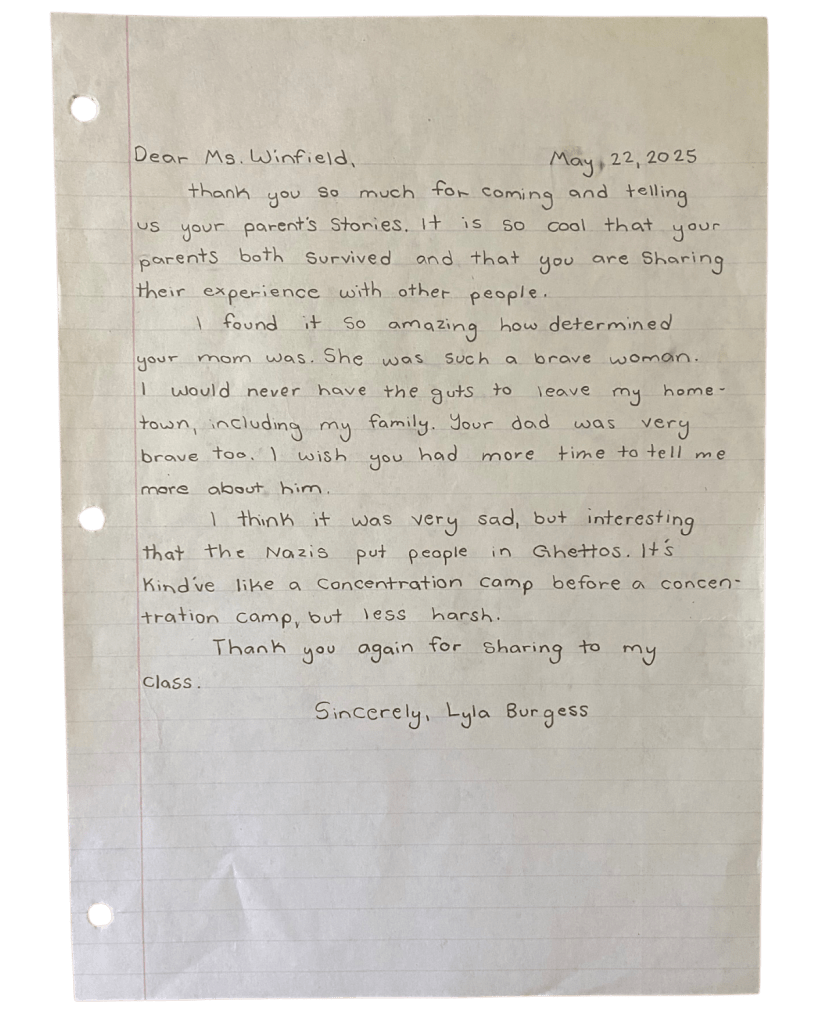 Dear Ms. Winfield, May, 22, 2025
thank you so much for coming and telling
us your parent's Stories. It is so cool that your
parents both survived and that you are Sharing
their experience with other people.
I found it so amazing how determined
your mom was. She was such a brave woman.
I would never have the guts to leave my home-
town, including my family. Your dad was very
brave too. I wish you had more time to tell me
more about him.
I think it was very sad, but interesting
that the Nazis put people in Ghettos. It's
Kind've like a Concentration Camp before a concen-
tration camp, but less harsh.
Thank you again for sharing to my
Class.
Sincerely, Lyla Burgess